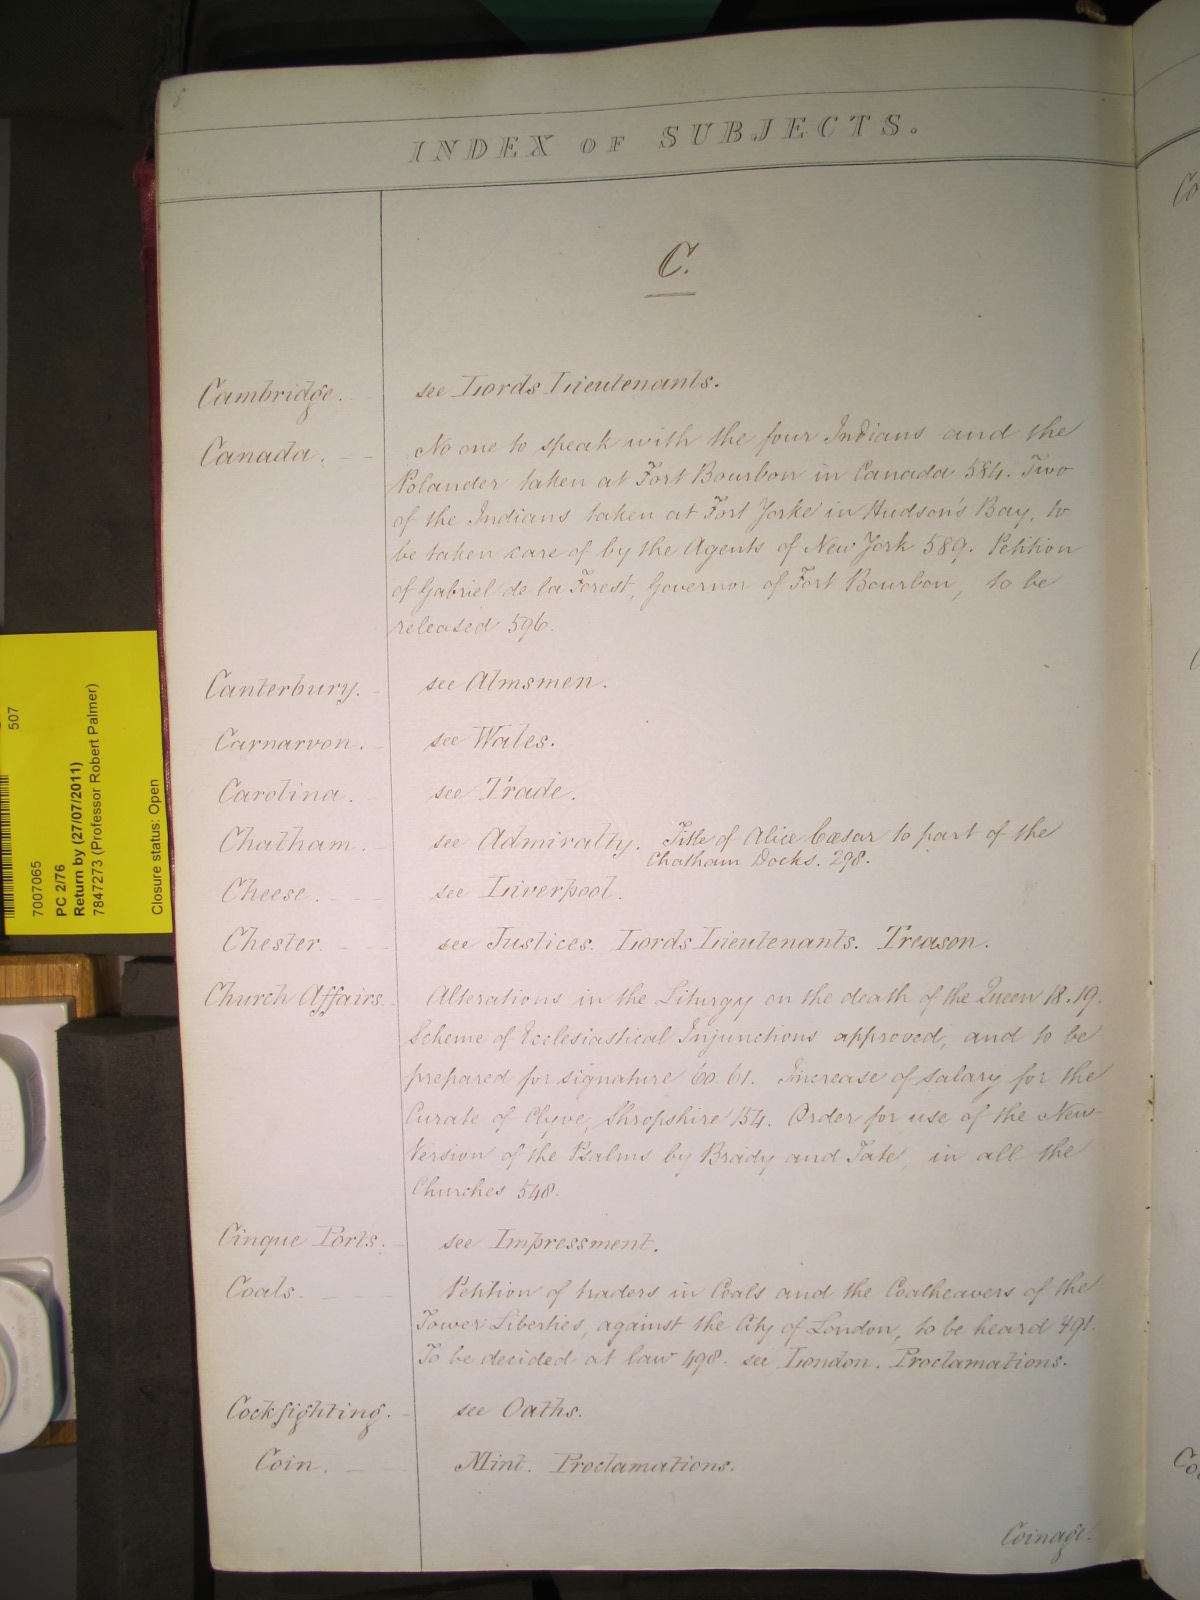 8
INDEX OF SUBJECTS.
C.
Cambridge. see Lords Lieutenants.
Canada. No one to speak with the four Indians and the
Polander taken at Fort Bourbon in Canada 584. Two
of the Indians taken at Fort Yorke in Hudson's Bay, to
be taken care of by the Agents of New York 589. Petition
of Gabriel de la Forest, Governor of Fort Bourbon, to be
released 596.
Canterbury. see Almsmen.
Carnarvon. see Wales.
Carolina. see Trade.
Chatham. see Admiralty. Title of Alice Cæsar to part of the
Chatham Docks. 298.
Cheese. see Liverpool.
Chester. see Justices. Lords Lieutenants. Treason.
Church Affairs. Alterations in the Liturgy on the death of the Queen 18.19.
Scheme of Ecclesiastical Injunctions approved, and to be
prepared for signature 60.61. Increase of salary for the
Curate of Clyve, Shropshire 154. Order for use of the New
Version of the Psalms by Brady and Tate, in all the
Churches 548.
Cinque Ports. see Impressment.
Coals. Petition of traders in Coals and the Coalheavers of the
Tower Liberties, against the City of London, to be heard 491.
To be decided at law 498. see London. Proclamations.
Cockfighting. see Oaths.
Coin. Mint. Proclamations.
Coinage.
507
7007065
PC 2/76
Return by (27/07/2011)
7847273 (Professor Robert Palmer)
Closure status: Open